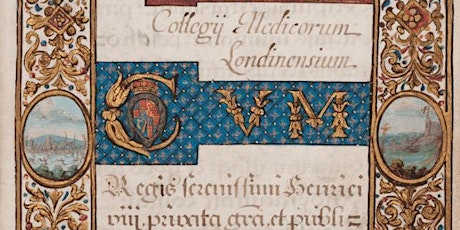 Collegij Medicorum
Londinensium
CVM
Regis serenissimi Henrici
viij. privata gr̃a, et publi=